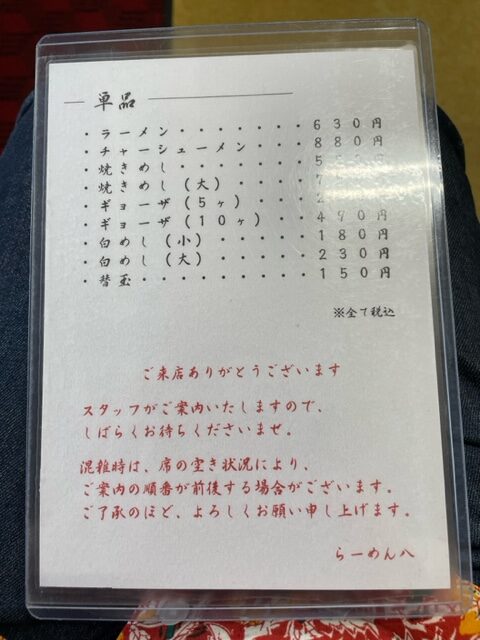 単品
・ラーメン・・・・・・・６３０円
・チャーシューメン・・・・８８０円
・焼きめし・・・・・・・
・焼きめし（大）・・・・
・ギョーザ（５ヶ）・・・
・ギョーザ（１０ヶ）・・４９０円
・白めし（小）・・・・・１８０円
・白めし（大）・・・・・２３０円
・替玉・・・・・・・・・１５０円
※全て税込
ご来店ありがとうございます
スタッフがご案内いたしますので、
しばらくお待ちくださいませ。
混雑時は、席の空き状況により、
ご案内の順番が前後する場合がございます。
ご了承のほど、よろしくお願い申し上げます。
らーめん八